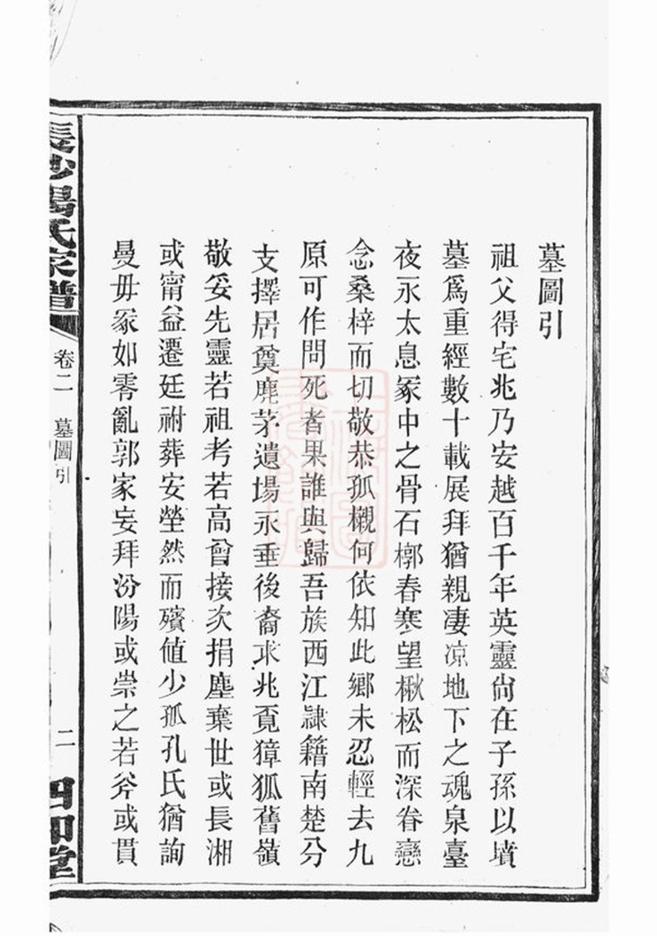 墓圖引
祖父得宅兆乃安越百千年英靈尙在子孫以墳
墓爲重經數十載展拜猶親凄凉地下之魂泉臺
夜永太息冢中之骨石槨春寒望楸松而深眷戀
念桑梓而切敬恭孤櫬何依知此鄉未忍輕去九
原可作問死者果誰與歸吾族西江隷籍南楚分
支擇居奠麃茅遺場永垂後裔求兆覔獐狐舊嶺
敬妥先靈若祖考若高曾接次捐塵棄世或長湘
或甯益遷廷祔葬安塋然而殯値少孤孔氏猶詢
曼毋冢如零亂郭家妄拜汾陽或崇之若斧或貫
長沙楊氏家譜
卷二
墓圖引
二
四知堂